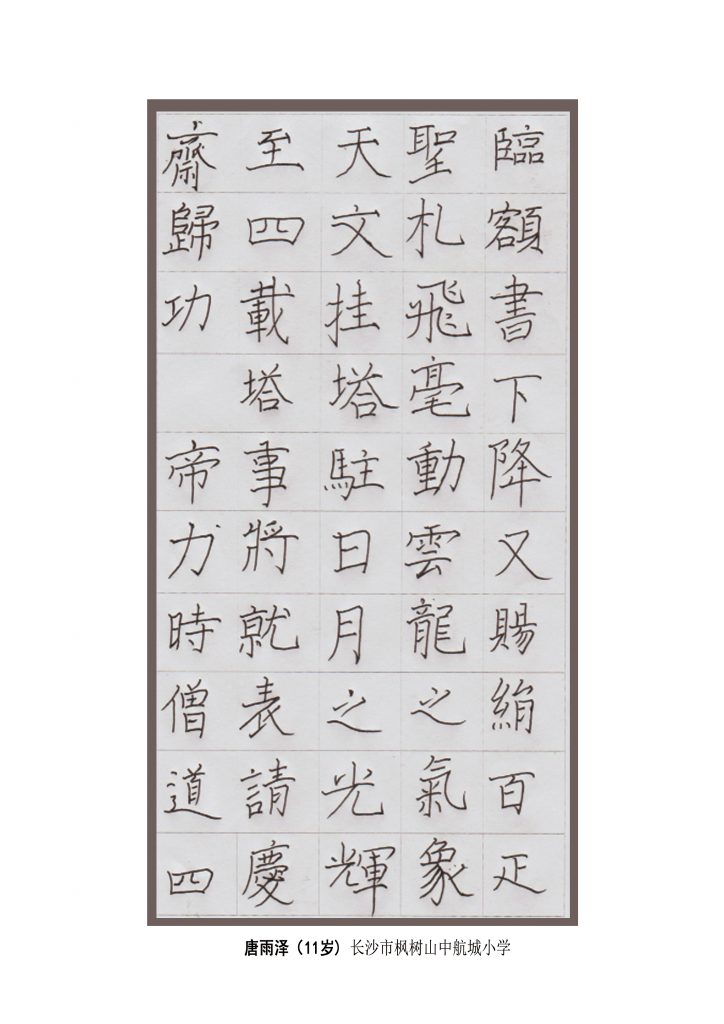 臨額書下降又賜絹百疋
聖札飛毫動雲龍之氣象
天文挂塔駐日月之光輝
至四載塔事將就表請慶
齋歸功 帝力時僧道四
唐雨泽（11岁）长沙市枫树山中航城小学